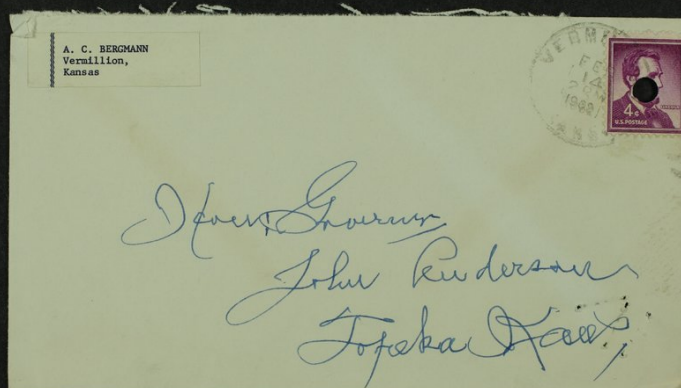 A. C. BERGMANN
Vermillion,
Kansas
FE
14
4¢
U.S. POSTAGE
Governor
John Anderson
Topeka Kans